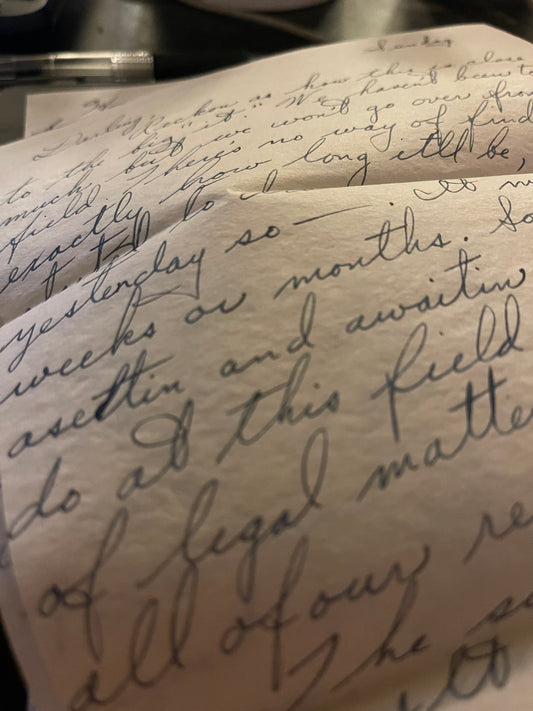 Sunday
Darling, Reckon as how this is close
to the big "it." We haven't been to
much but we won't go over from
field. There's no way of find
exactly how long it'll be,
yesterday so — . It m
weeks or months. So
asettin and awaitin
do at this field
of legal matte
all of our re
The s